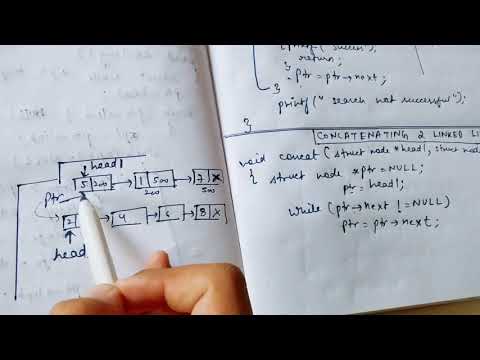 return;
}
ptr = ptr→next;
}
printf(" search not successful");
}
CONCATENATING 2 LINKED LI
void concat (struct node *head1, struct node
{ struct node *ptr = NULL;
ptr = head1;
while (ptr→next != NULL)
ptr = ptr→next;
head1
5 200 1 500 7 X
200 500
ptr
2 4 6 8 X
head